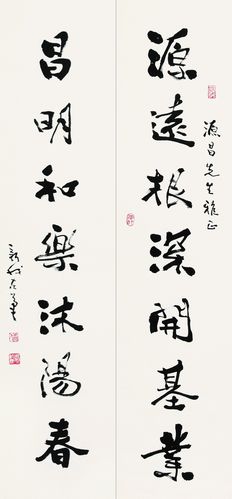 源遠根深開基業
源昌先生雅正
昌明和樂沐陽春